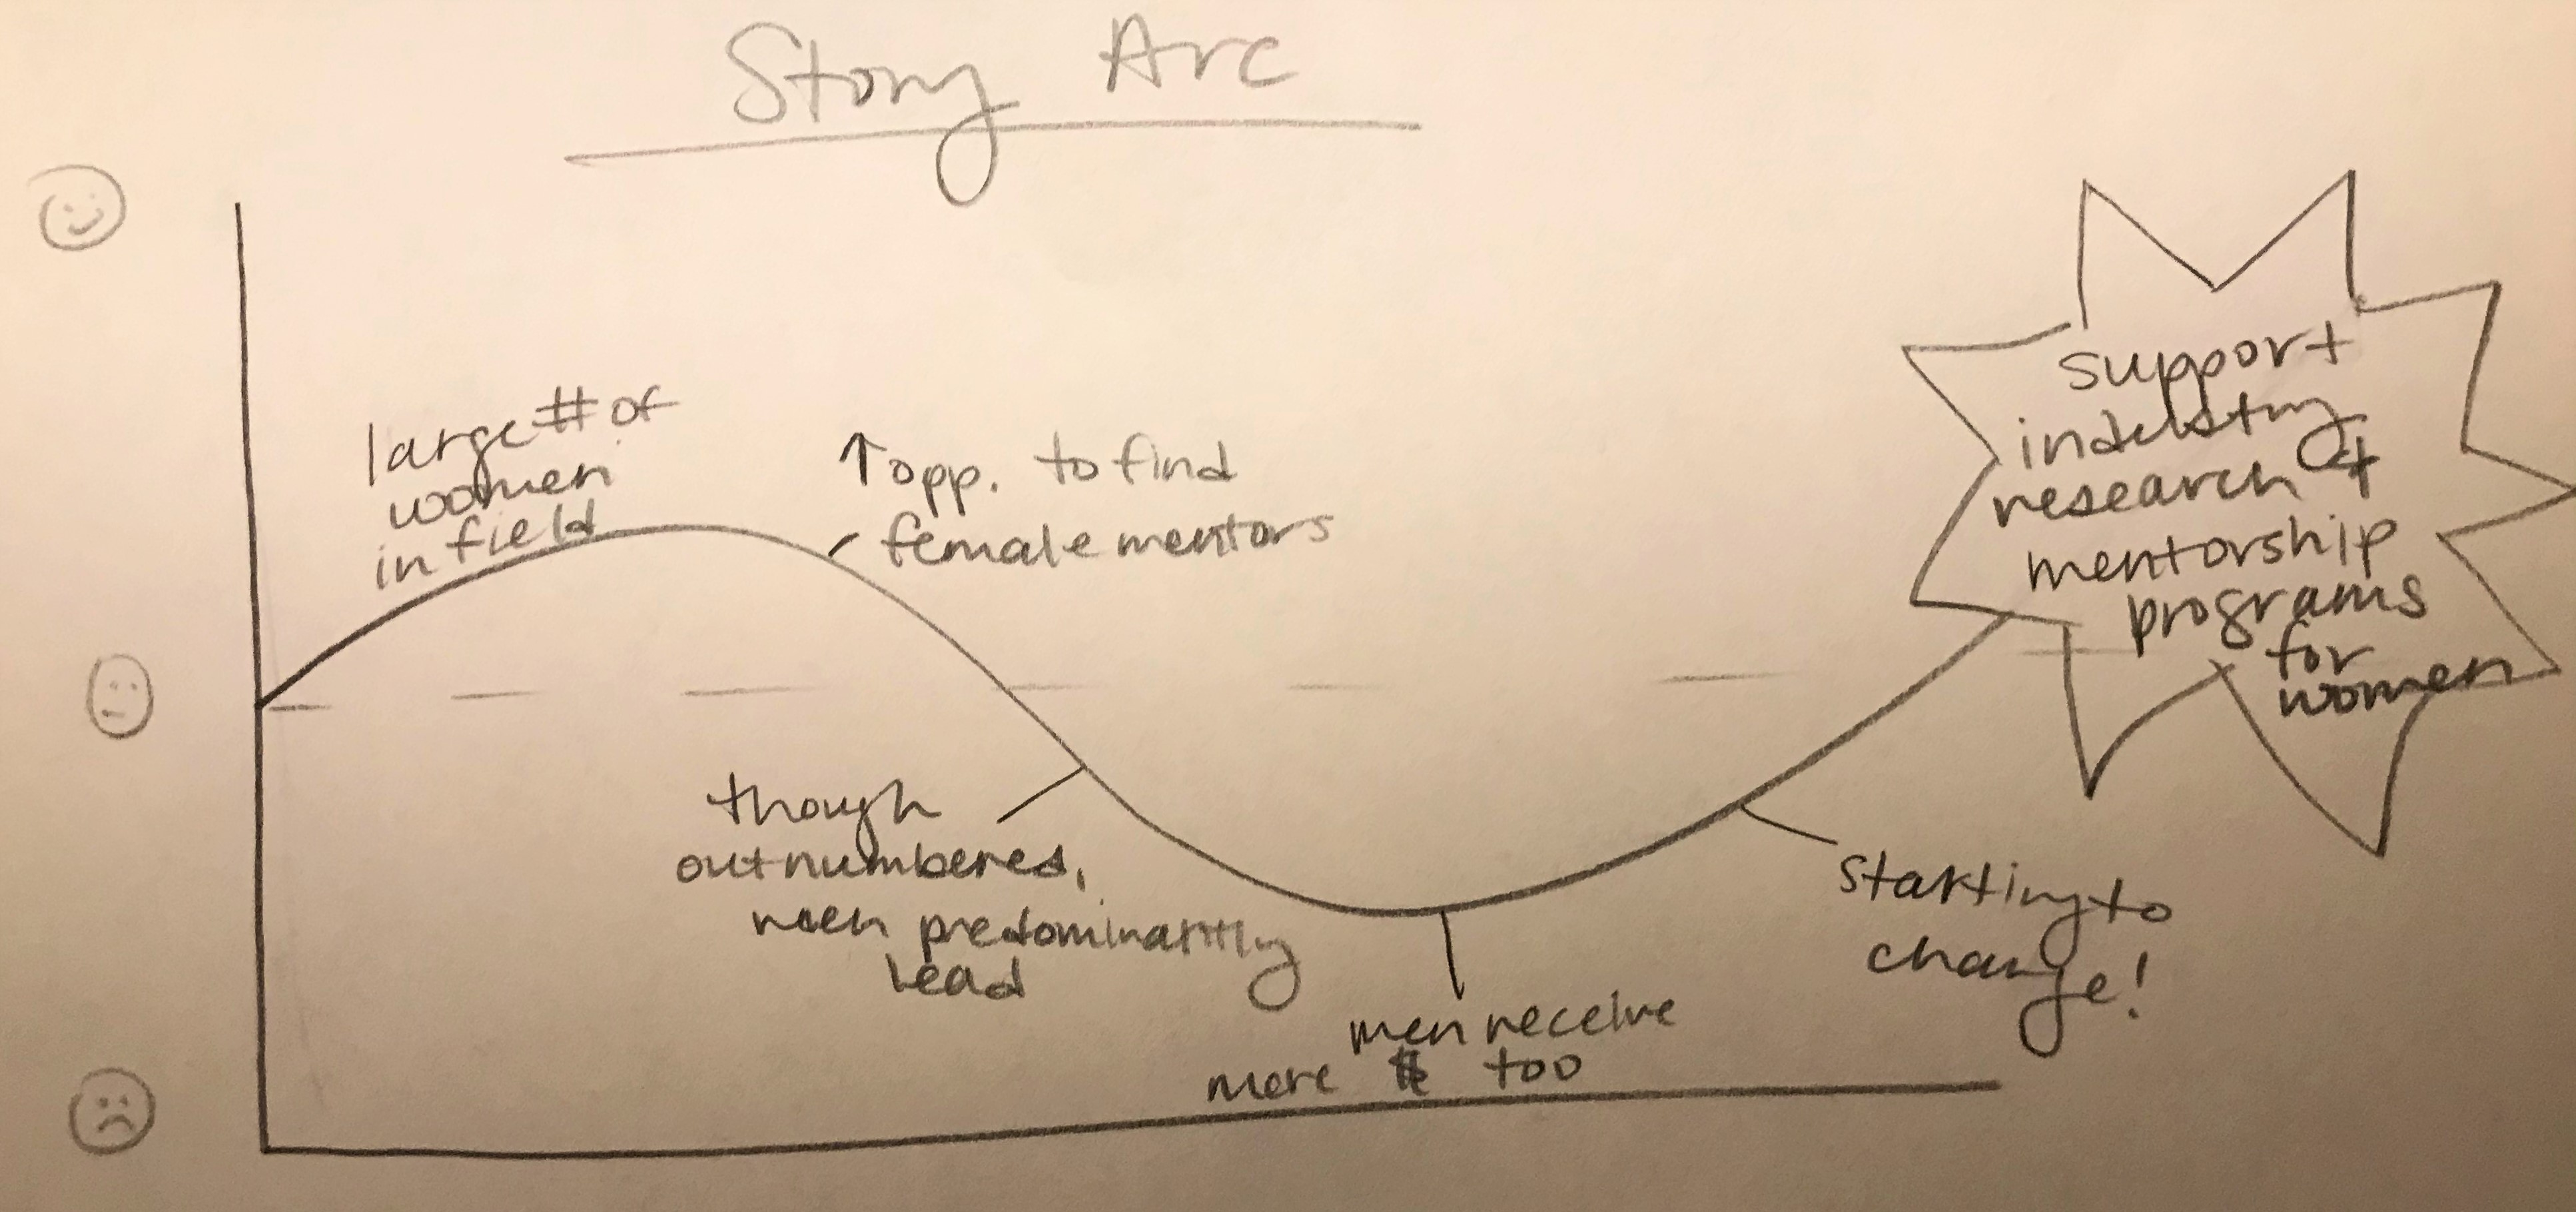 Story Arc
large # of
women
in field
↑ opp. to find
female mentors
though
outnumbered,
men predominantly
lead
men receive
more $ too
starting to
change!
support
industry
research +
mentorship
programs
for
women